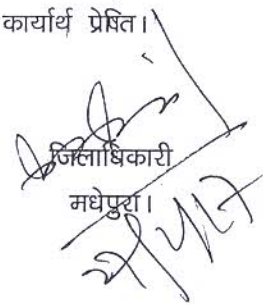 कार्यार्थ प्रेषित।
जिलाधिकारी
मधेपुरा।